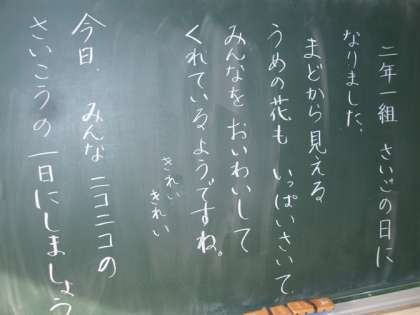 二年一組 さいごの日に
なりました。
まどから見える
うめの花も いっぱいさいて
みんなを おいわいして
くれているようですね。
きれい
きれい
今日、みんな ニコニコの
さいこうの一日にしましょう